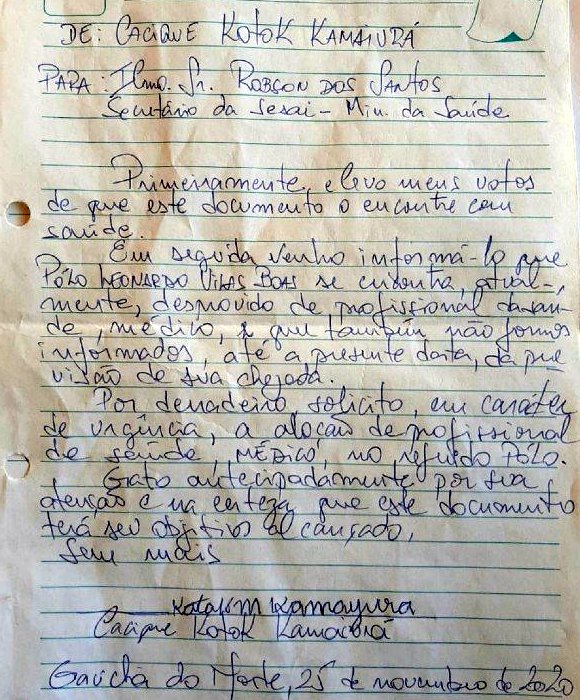 DE: CACIQUE KOTOK KAMAIURÁ
PARA: Ilmo. Sr. ROBSON DOS SANTOS
Secretário da Sesai - Min. da Saúde
Primeiramente, elevo meus votos
de que este documento o encontre com
saúde.
Em seguida venho informá-lo que
PÓLO LEONARDO VILAS BOAS se encontra, atual-
mente, desprovido de profissional da saú-
de, médico, e que também não fomos
informados, até a presente data, da pre
visão de sua chegada.
Por derradeiro solicito, em caráter
de urgência, a alocação de profissional
de saúde, MÉDICO, no referido PÓLO.
Grato antecipadamente por sua
atenção e na certeza que este documento
terá seu objetivo alcançado,
Sem mais
Kamayura
Cacique Kotok Kamaiurá
Gaúcha do Norte, 25 de novembro de 2020